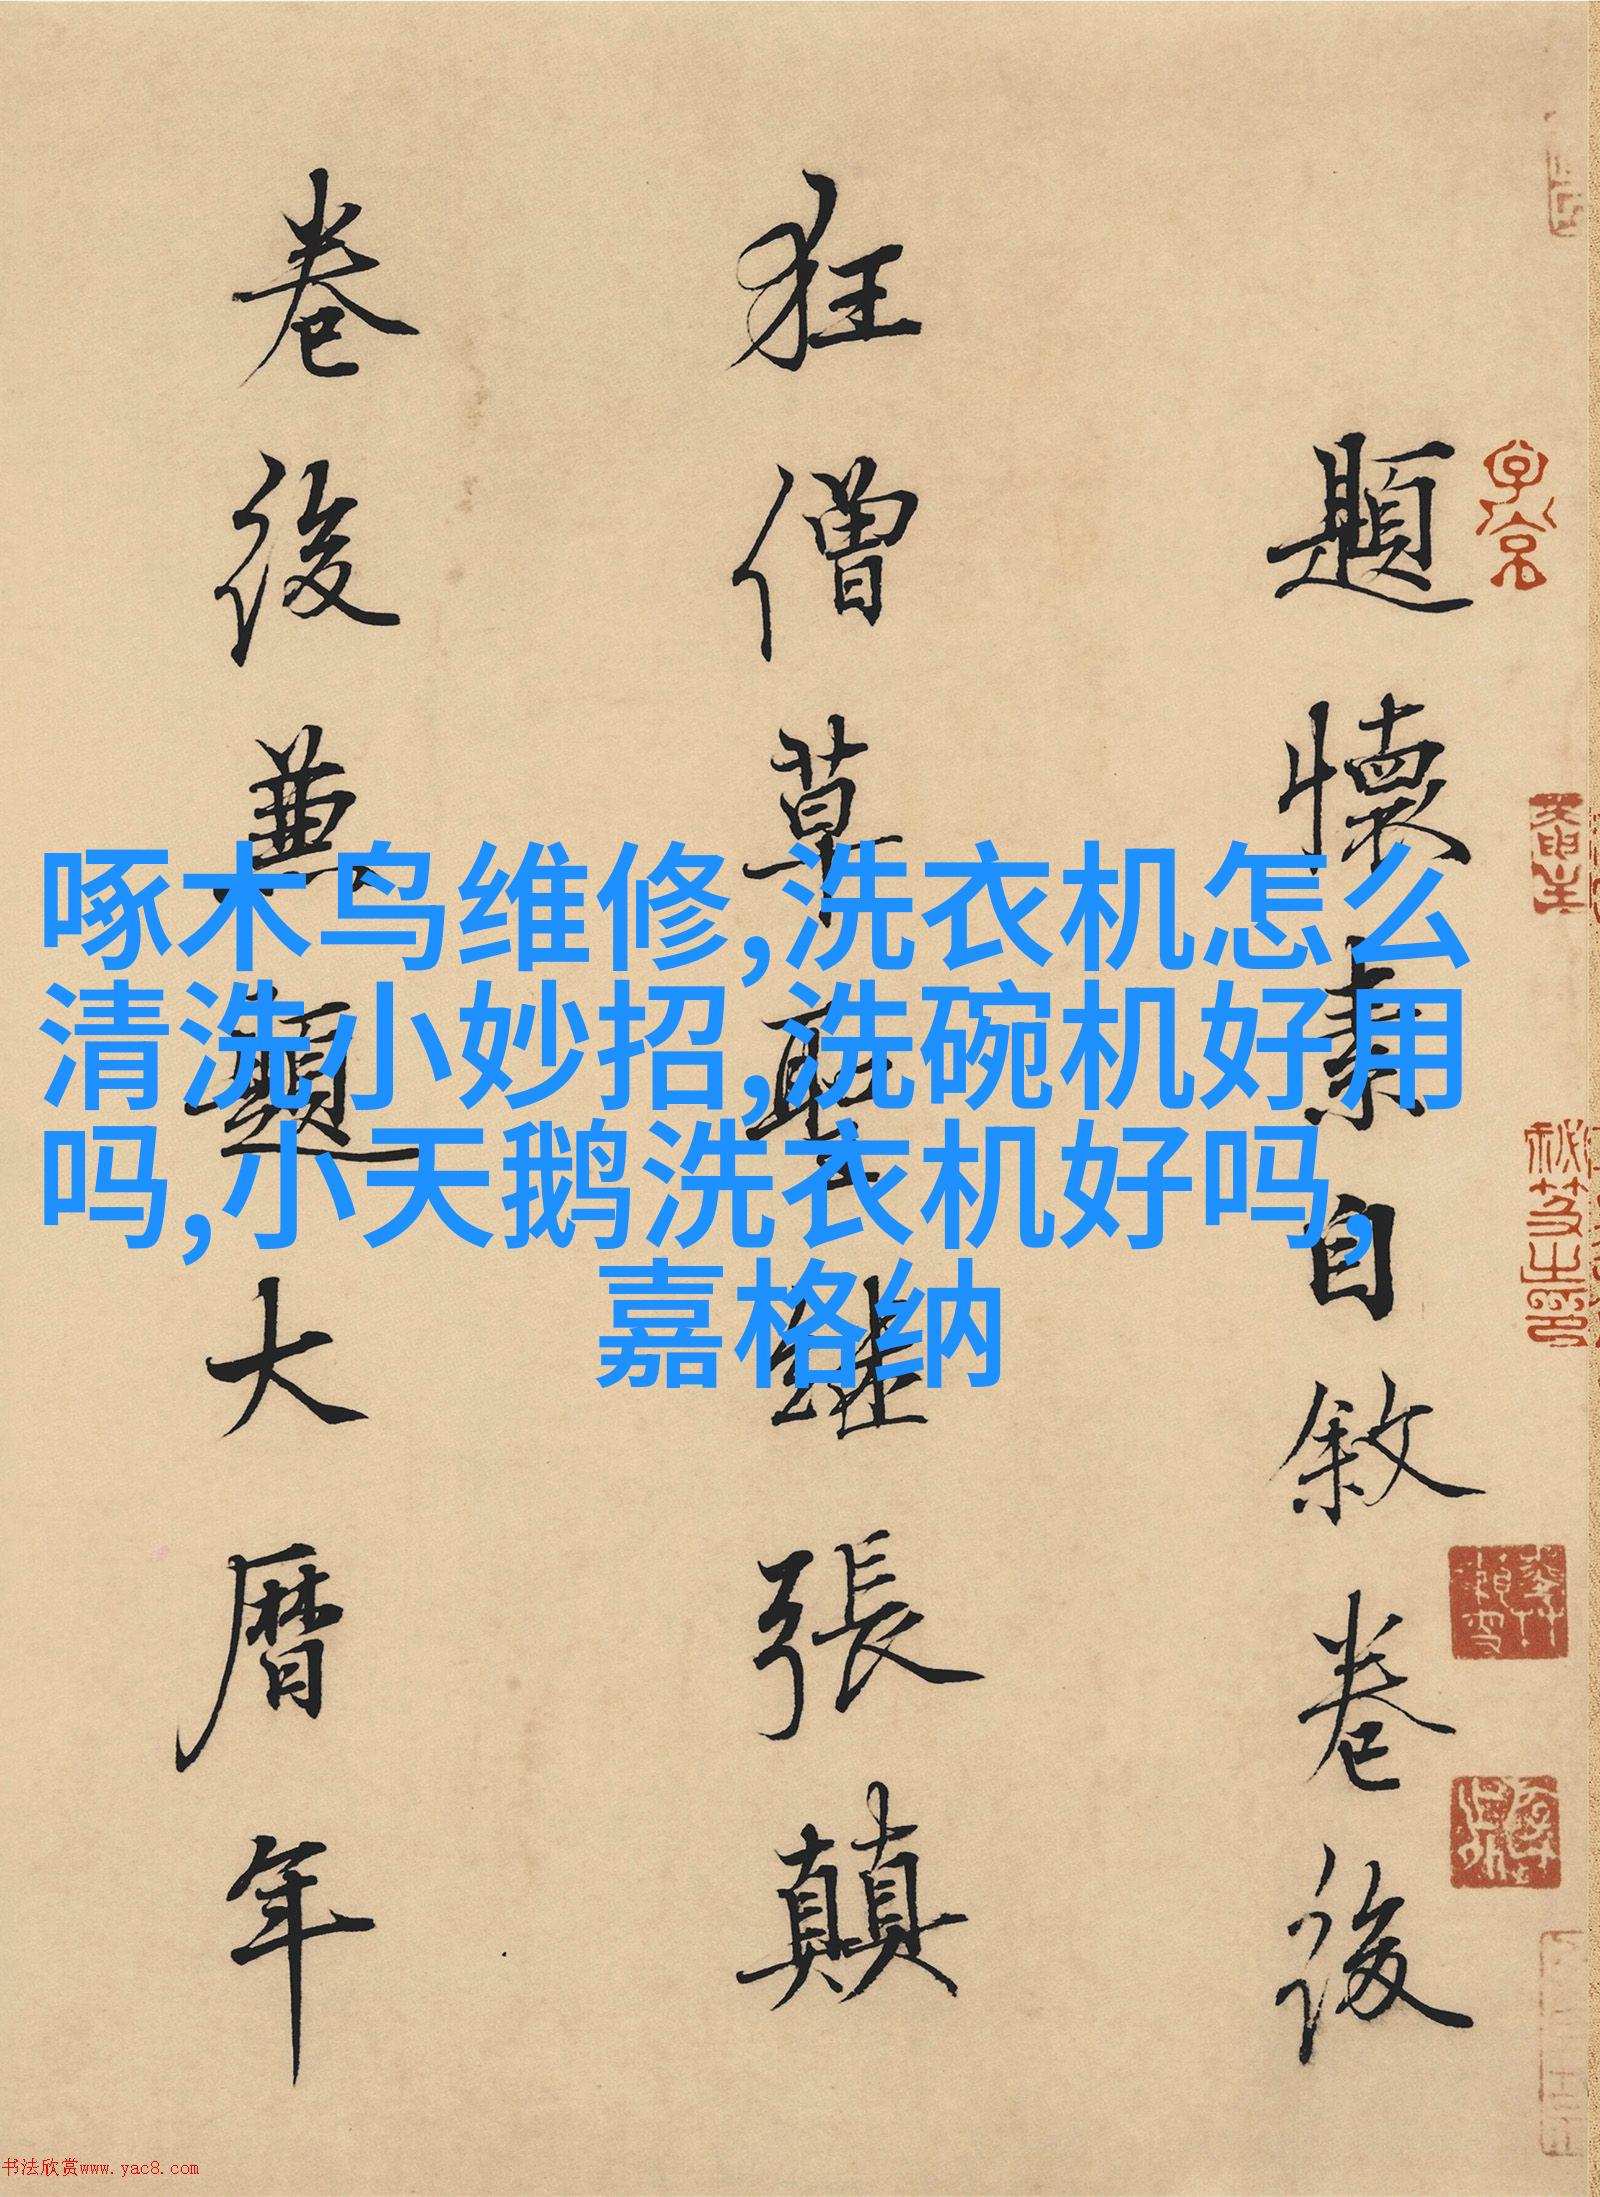 題懷素自敘卷後
狂僧草聖繼張顛
卷後兼題大曆年
啄木鸟维修,洗衣机怎么
清洗小妙招,洗碗机好用
吗,小天鹅洗衣机好吗,
嘉格纳
书法欣赏www.yac8.com